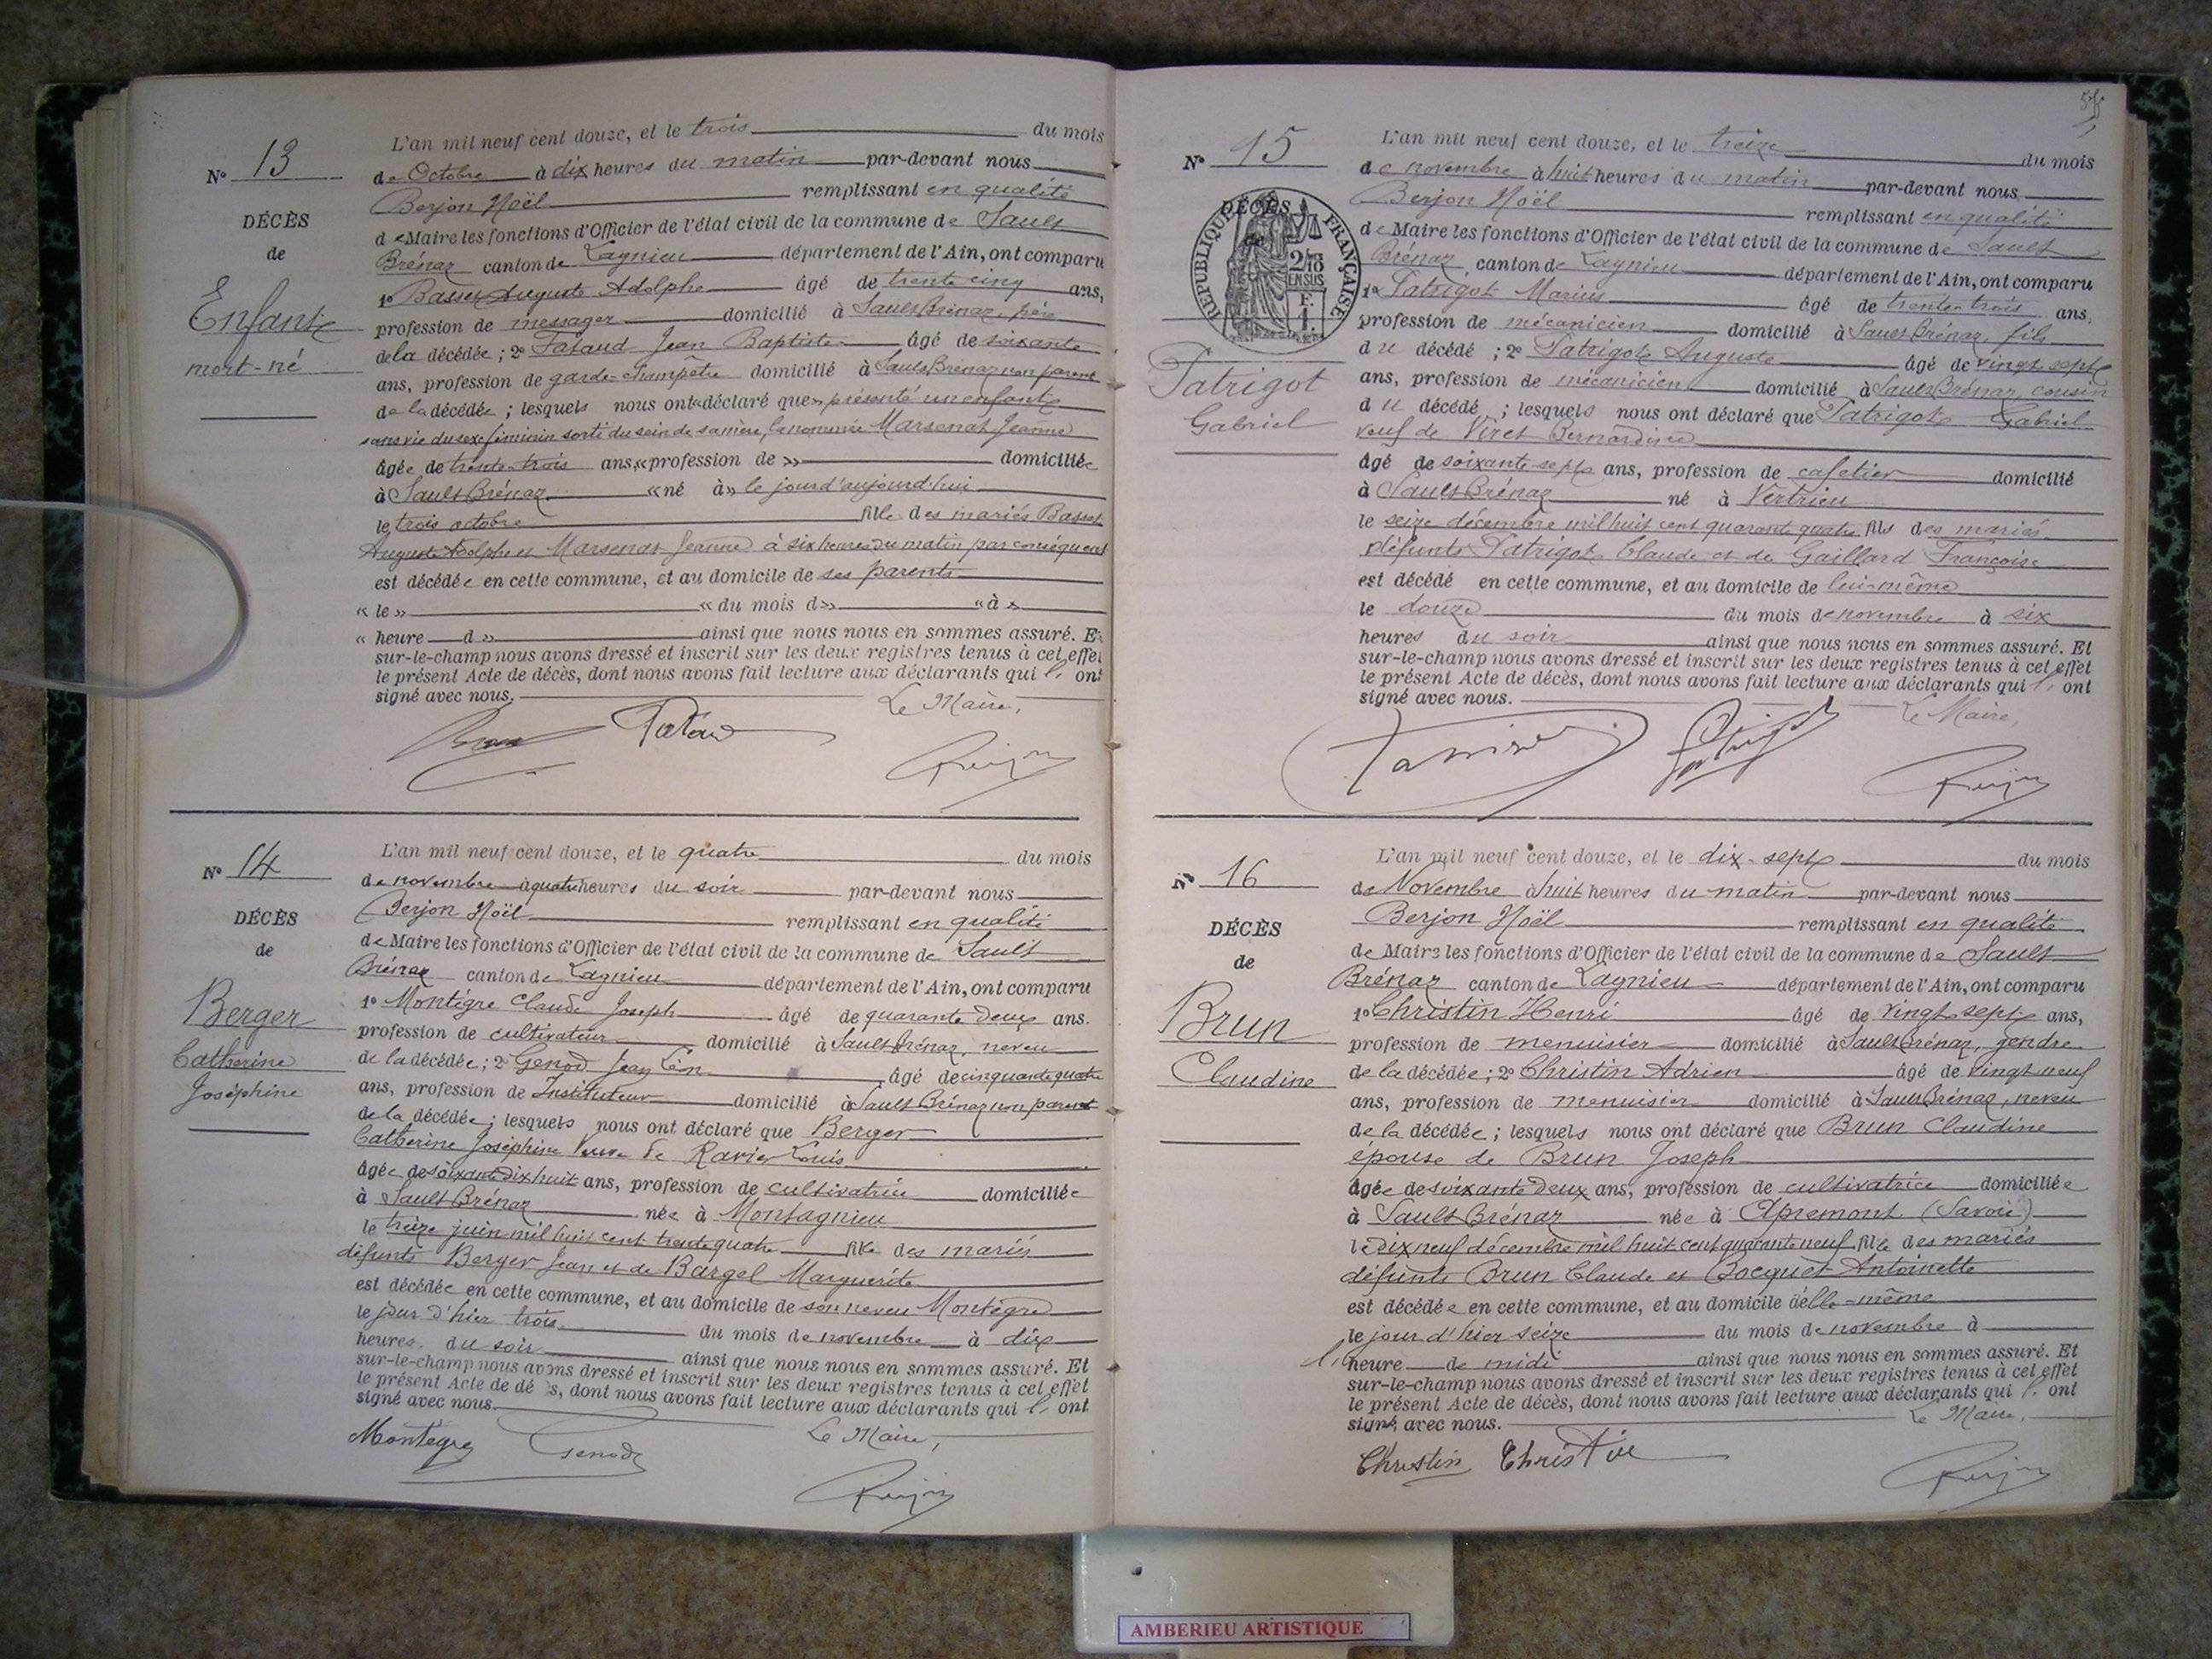 L'an mil neuf cent douze, et le trois du mois
N° 13
de Octobre à dix heures du matin par-devant nous
Berjon Noël remplissant en qualité
DÉCÈS
de Maire les fonctions d'Officier de l'état civil de la commune de Sault
de
Brénaz canton de Lagnieu département de l'Ain, ont comparu
1° Basset Auguste Adolphe âgé de trente cinq ans,
Enfant
profession de messager domicilié à Sault Brénaz, père
mort-né
de la décédée ; 2° Jean Baptiste âgé de soixante
ans, profession de garde-champêtre domicilié à Sault Brénaz non parent
de la décédée ; lesquels nous ont «déclaré que» présenté un enfant
sans vie du sexe féminin sorti du sein de sa mère, la nommée Marsenat Jeanne
âgée de trente-trois ans, «profession de» domiciliée
à Sault Brénaz «né à» le jour d'aujourd'hui
le trois octobre fille des mariés Basset
Auguste Adolphe et Marsenat Jeanne à six heures du matin par conséquent
est décédée en cette commune, et au domicile de ses parents
«le» «du mois d» «à»
«heure d» ainsi que nous nous en sommes assuré. Et
sur-le-champ nous avons dressé et inscrit sur les deux registres tenus à cet effet
le présent Acte de décès, dont nous avons fait lecture aux déclarants qui l' ont
signé avec nous. Le Maire,
L'an mil neuf cent douze, et le quatre du mois
N° 14
de novembre à quatre heures du soir par-devant nous
Berjon Noël remplissant en qualité
DÉCÈS
de Maire les fonctions d'Officier de l'état civil de la commune de Sault
de
Brénaz canton de Lagnieu département de l'Ain, ont comparu
Berger
1° Montégre Claude Joseph âgé de quarante deux ans.
profession de cultivateur domicilié à Sault Brénaz, neveu
Catherine
de la décédée ; 2° Genod Jean Léon âgé de cinquante quatre
Joséphine
ans, profession de Instituteur domicilié à Sault Brénaz non parent
de la décédée ; lesquels nous ont déclaré que Berger
Catherine Joséphine Veuve de Ravier Louis
âgée de soixante dix huit ans, profession de cultivatrice domiciliée
à Sault Brénaz née à Montagnieu
le treize juin mil huit cent trente quatre fille des mariés
défunts Berger Jean et de Bargel Marguerite
est décédée en cette commune, et au domicile de son neveu Montégre
le jour d'hier trois du mois de novembre à dix
heures du soir ainsi que nous nous en sommes assuré. Et
sur-le-champ nous avons dressé et inscrit sur les deux registres tenus à cet effet
le présent Acte de décès, dont nous avons fait lecture aux déclarants qui l' ont
signé avec nous.
Le Maire,
Montégre Genod
L'an mil neuf cent douze, et le treize du mois
N° 15
de novembre à huit heures du matin par-devant nous
Berjon Noël remplissant en qualité
DÉCÈS
RÉPUBLIQUE FRANÇAISE
2/10 EN SUS
F. 1
de Maire les fonctions d'Officier de l'état civil de la commune de Sault
Brénaz, canton de Lagnieu département de l'Ain, ont comparu
1° Patrigot Marius âgé de trente-trois ans,
profession de mécanicien domicilié à Sault Brénaz, fils
du décédé ; 2° Patrigot Auguste âgé de vingt sept
Patrigot
ans, profession de mécanicien domicilié à Sault Brénaz, cousin
Gabriel
du décédé ; lesquels nous ont déclaré que Patrigot Gabriel
veuf de Viret Bernardine
âgé de soixante-sept ans, profession de cafetier domicilié
à Sault Brénaz né à Vertrieu
le seize décembre mil huit cent quarante quatre fils des mariés
défunts Patrigot Claude et de Gaillard Françoise
est décédé en cette commune, et au domicile de lui-même
le douze du mois de novembre à six
heures du soir ainsi que nous nous en sommes assuré. Et
sur-le-champ nous avons dressé et inscrit sur les deux registres tenus à cet effet
le présent Acte de décès, dont nous avons fait lecture aux déclarants qui l' ont
signé avec nous. Le Maire,
L'an mil neuf cent douze, et le dix-sept du mois
N° 16
de Novembre à huit heures du matin par-devant nous
Berjon Noël remplissant en qualité
DÉCÈS
de Maire les fonctions d'Officier de l'état civil de la commune de Sault
de
Brénaz canton de Lagnieu département de l'Ain, ont comparu
Brun
1° Christin Henri âgé de vingt sept ans,
profession de menuisier domicilié à Sault Brénaz, gendre
Claudine
de la décédée ; 2° Christin Adrien âgé de vingt neuf
ans, profession de menuisier domicilié à Sault Brénaz, neveu
de la décédée ; lesquels nous ont déclaré que Brun Claudine
épouse de Brun Joseph
âgée de soixante deux ans, profession de cultivatrice domiciliée
à Sault Brénaz née à Apremont (Savoie)
le dix neuf décembre mil huit cent quarante neuf fille des mariés
défunts Brun Claude et Bocquet Antoinette
est décédée en cette commune, et au domicile d'elle-même
le jour d'hier seize du mois de novembre à
heure de midi ainsi que nous nous en sommes assuré. Et
sur-le-champ nous avons dressé et inscrit sur les deux registres tenus à cet effet
le présent Acte de décès, dont nous avons fait lecture aux déclarants qui l' ont
signé avec nous. Le Maire,
Christin Christin
AMBERIEU ARTISTIQUE